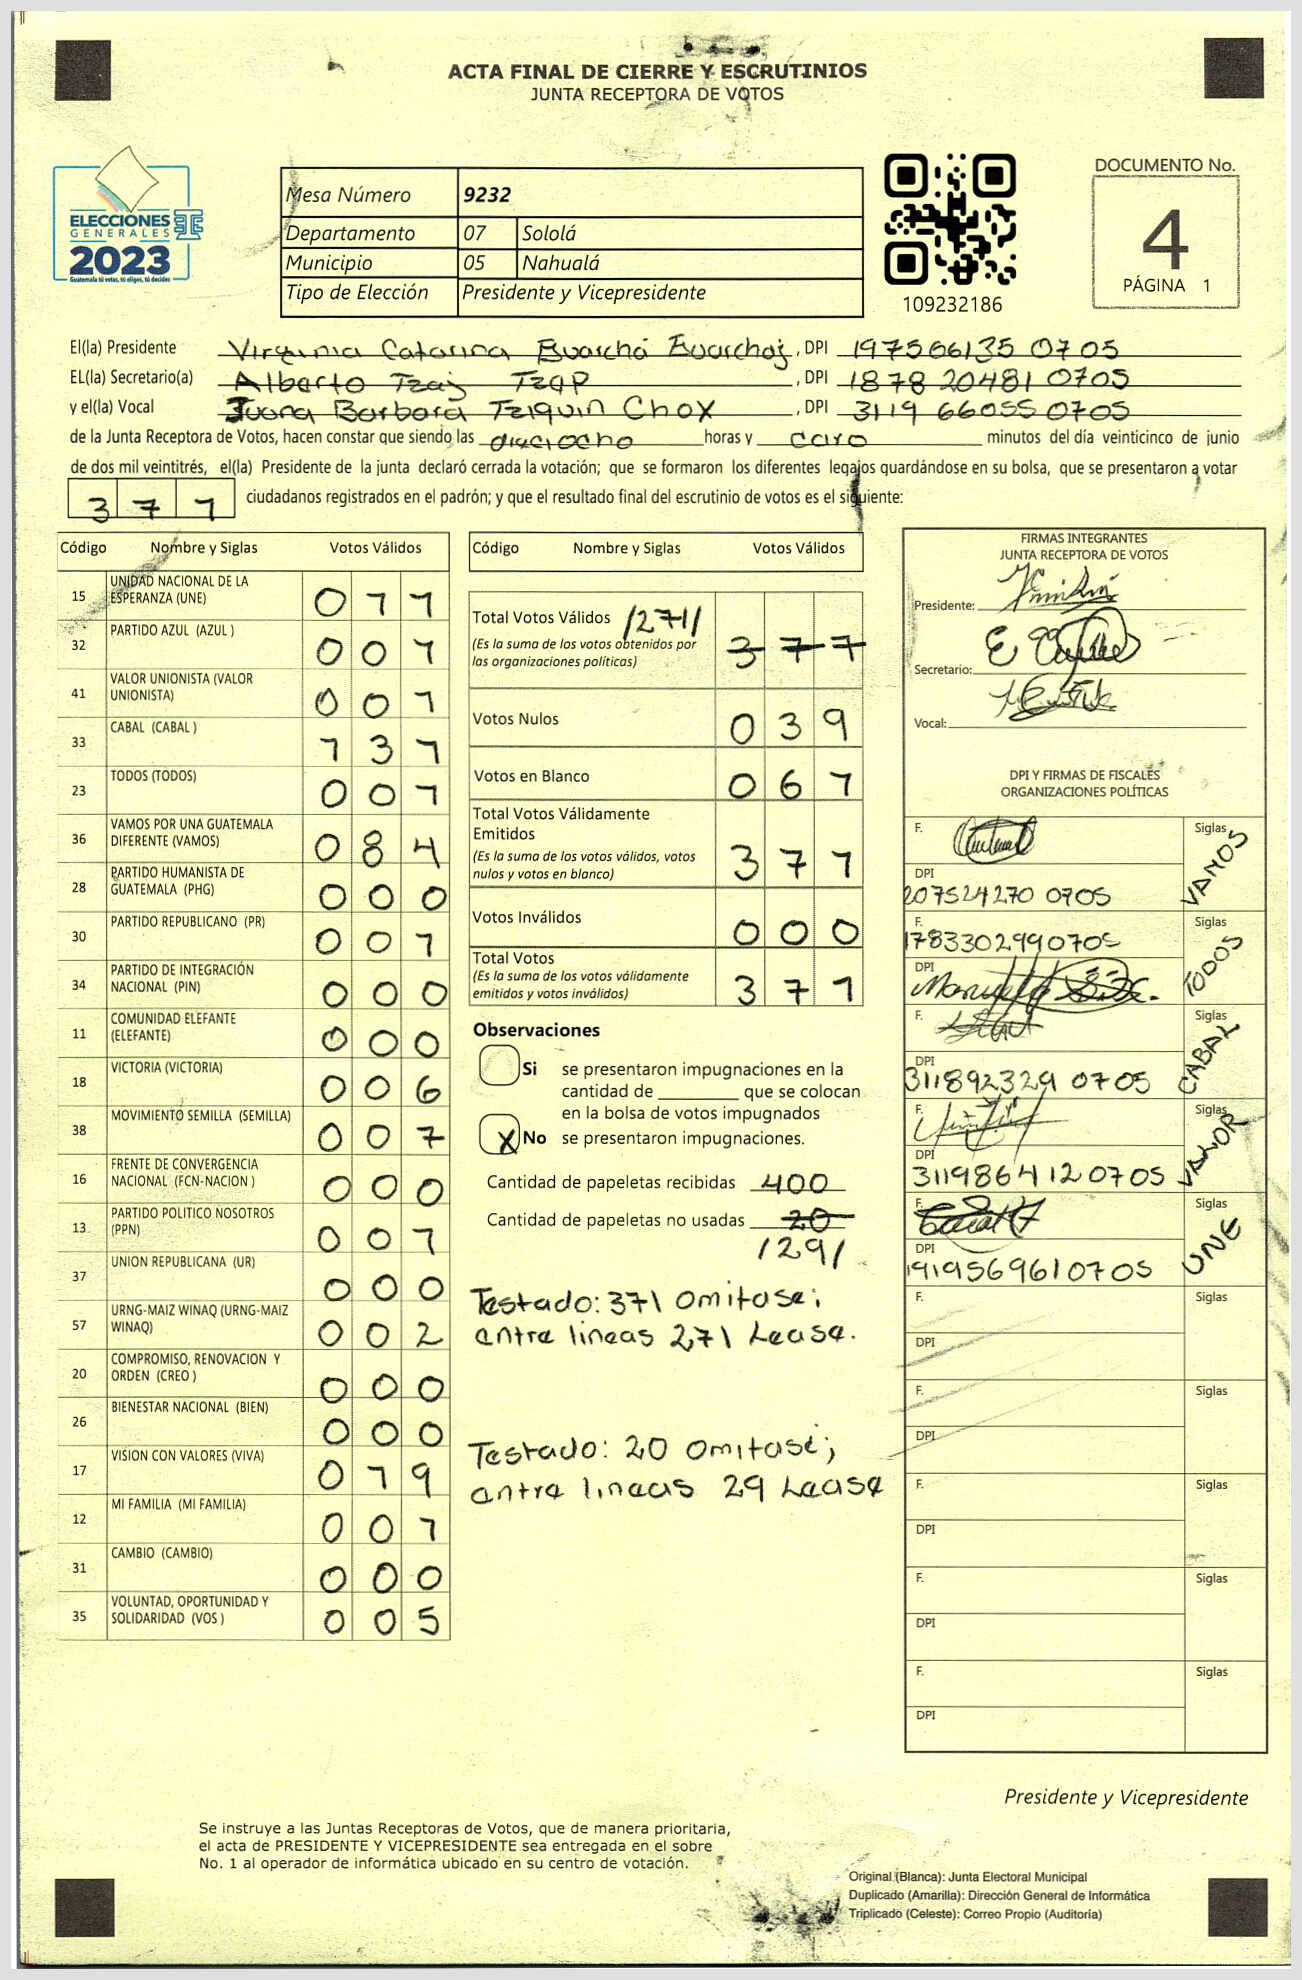 ACTA FINAL DE CIERRE Y ESCRUTINIOS
JUNTA RECEPTORA DE VOTOS
ELECCIONES
GENERALES
2023
Guatemala tú votas, tú eliges, tú decides
Mesa Número 9232
Departamento 07 Sololá
Municipio 05 Nahualá
Tipo de Elección Presidente y Vicepresidente
109232186
DOCUMENTO No.
4
PÁGINA 1
El(la) Presidente Virginia Catarina Guarchá Guarchaj, DPI 197566135 0705
EL(la) Secretario(a) Alberto Tzaj Tzap, DPI 1878 20481 0705
y el(la) Vocal Juana Barbara Tziquin Chox, DPI 3119 66055 0705
de la Junta Receptora de Votos, hacen constar que siendo las dieciocho horas y cero minutos del día veinticinco de junio
de dos mil veintitrés, el(la) Presidente de la junta declaró cerrada la votación; que se formaron los diferentes legajos guardándose en su bolsa, que se presentaron a votar
3 7 1 ciudadanos registrados en el padrón; y que el resultado final del escrutinio de votos es el siguiente:
Código Nombre y Siglas Votos Válidos
15 UNIDAD NACIONAL DE LA ESPERANZA (UNE) 0 1 1
32 PARTIDO AZUL (AZUL ) 0 0 1
41 VALOR UNIONISTA (VALOR UNIONISTA) 0 0 1
33 CABAL (CABAL ) 1 3 1
23 TODOS (TODOS) 0 0 1
36 VAMOS POR UNA GUATEMALA DIFERENTE (VAMOS) 0 8 4
28 PARTIDO HUMANISTA DE GUATEMALA (PHG) 0 0 0
30 PARTIDO REPUBLICANO (PR) 0 0 1
34 PARTIDO DE INTEGRACIÓN NACIONAL (PIN) 0 0 0
11 COMUNIDAD ELEFANTE (ELEFANTE) 0 0 0
18 VICTORIA (VICTORIA) 0 0 6
38 MOVIMIENTO SEMILLA (SEMILLA) 0 0 7
16 FRENTE DE CONVERGENCIA NACIONAL (FCN-NACION ) 0 0 0
13 PARTIDO POLITICO NOSOTROS (PPN) 0 0 1
37 UNION REPUBLICANA (UR) 0 0 0
57 URNG-MAIZ WINAQ (URNG-MAIZ WINAQ) 0 0 2
20 COMPROMISO, RENOVACION Y ORDEN (CREO ) 0 0 0
26 BIENESTAR NACIONAL (BIEN) 0 0 0
17 VISION CON VALORES (VIVA) 0 1 9
12 MI FAMILIA (MI FAMILIA) 0 0 1
31 CAMBIO (CAMBIO) 0 0 0
35 VOLUNTAD, OPORTUNIDAD Y SOLIDARIDAD (VOS ) 0 0 5
Código Nombre y Siglas Votos Válidos
Total Votos Válidos /271/ 3 7 1
(Es la suma de los votos obtenidos por
las organizaciones políticas)
Votos Nulos 0 3 9
Votos en Blanco 0 6 1
Total Votos Válidamente
Emitidos
(Es la suma de los votos válidos, votos
nulos y votos en blanco) 3 7 1
Votos Inválidos 0 0 0
Total Votos
(Es la suma de los votos válidamente
emitidos y votos inválidos) 3 7 1
Observaciones
Si se presentaron impugnaciones en la
cantidad de ________ que se colocan
en la bolsa de votos impugnados
X No se presentaron impugnaciones.
Cantidad de papeletas recibidas 400
Cantidad de papeletas no usadas 20
/29/
Testado: 371 omitase;
entre lineas 271 Lease.
Testado: 20 omitase;
entre lineas 29 Lease
FIRMAS INTEGRANTES
JUNTA RECEPTORA DE VOTOS
Presidente:
Secretario:
Vocal:
DPI Y FIRMAS DE FISCALES
ORGANIZACIONES POLÍTICAS
F. Siglas VAMOS
DPI 207524270 0705
F. 1783302990705 Siglas TODOS
DPI
F. Siglas CABAL
DPI 311892329 0705
F. Siglas VALOR
DPI 311986412 0705
F. Siglas UNE
DPI 1919569610705
F. Siglas
DPI
F. Siglas
DPI
F. Siglas
DPI
F. Siglas
DPI
F. Siglas
DPI
Presidente y Vicepresidente
Se instruye a las Juntas Receptoras de Votos, que de manera prioritaria,
el acta de PRESIDENTE Y VICEPRESIDENTE sea entregada en el sobre
No. 1 al operador de informática ubicado en su centro de votación.
Original (Blanca): Junta Electoral Municipal
Duplicado (Amarilla): Dirección General de Informática
Triplicado (Celeste): Correo Propio (Auditoría)